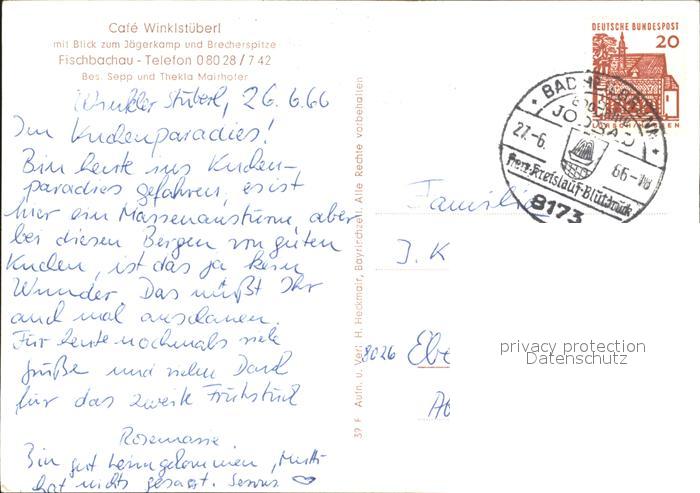 Café Winklstüberl
mit Blick zum Jägerkamp und Brecherspitze
Fischbachau - Telefon 0 80 28 / 7 42
Bes. Sepp und Thekla Mairhofer
Winkler Stüberl, 26.6.66
Im Kuchenparadies!
Bin heute ins Kuchen-
paradies gefahren, es ist
hier ein Massenansturm aber
bei diesen Bergen von guten
Kuchen, ist das ja kein
Wunder. Das müßt Ihr
auch mal anschauen.
Für heute nochmals viele
Grüße und vielen Dank
für das zweite Frühstück
Rosemarie
Bin gut heimgekommen, Mutti
hat nichts gesagt. Servus
39 F Aufn. u. Verl. H. Heckmair, Bayrischzell. Alle Rechte vorbehalten
DEUTSCHE BUNDESPOST
20
BAD HEILBRUNN
JODBAD
27.-6. 66-18
Herz-Kreislauf-Blutdruck
8173
Familie
J. K
8026 Ebe
privacy protection
Datenschutz